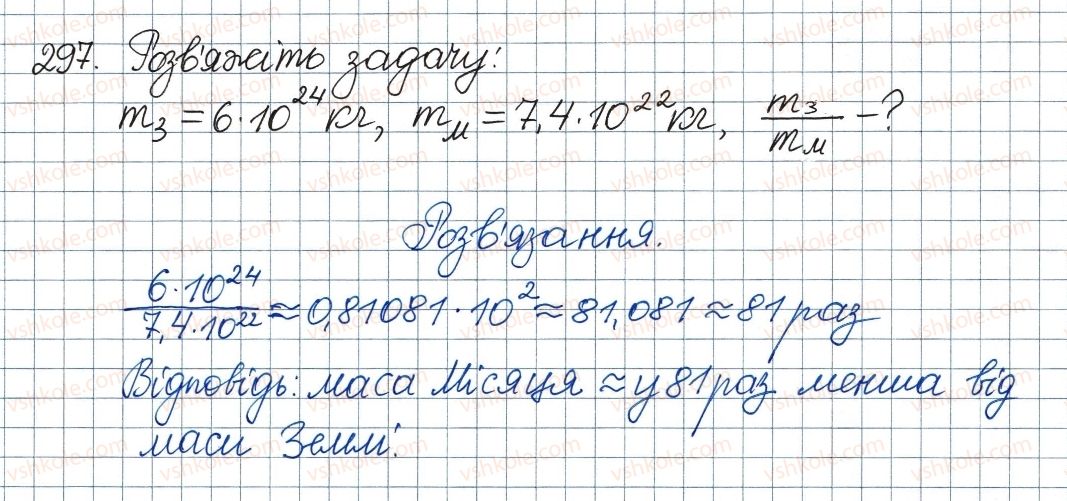 297. Розв'яжіть задачу:
m₃ = 6·10²⁴ кг, mм = 7,4·10²² кг, m₃/mм - ?
Розв'язання.
6·10²⁴/7,4·10²² ≈ 0,81081·10² ≈ 81,081 ≈ 81 раз
Відповідь: маса Місяця ≈ у 81 раз менша від
маси Землі.